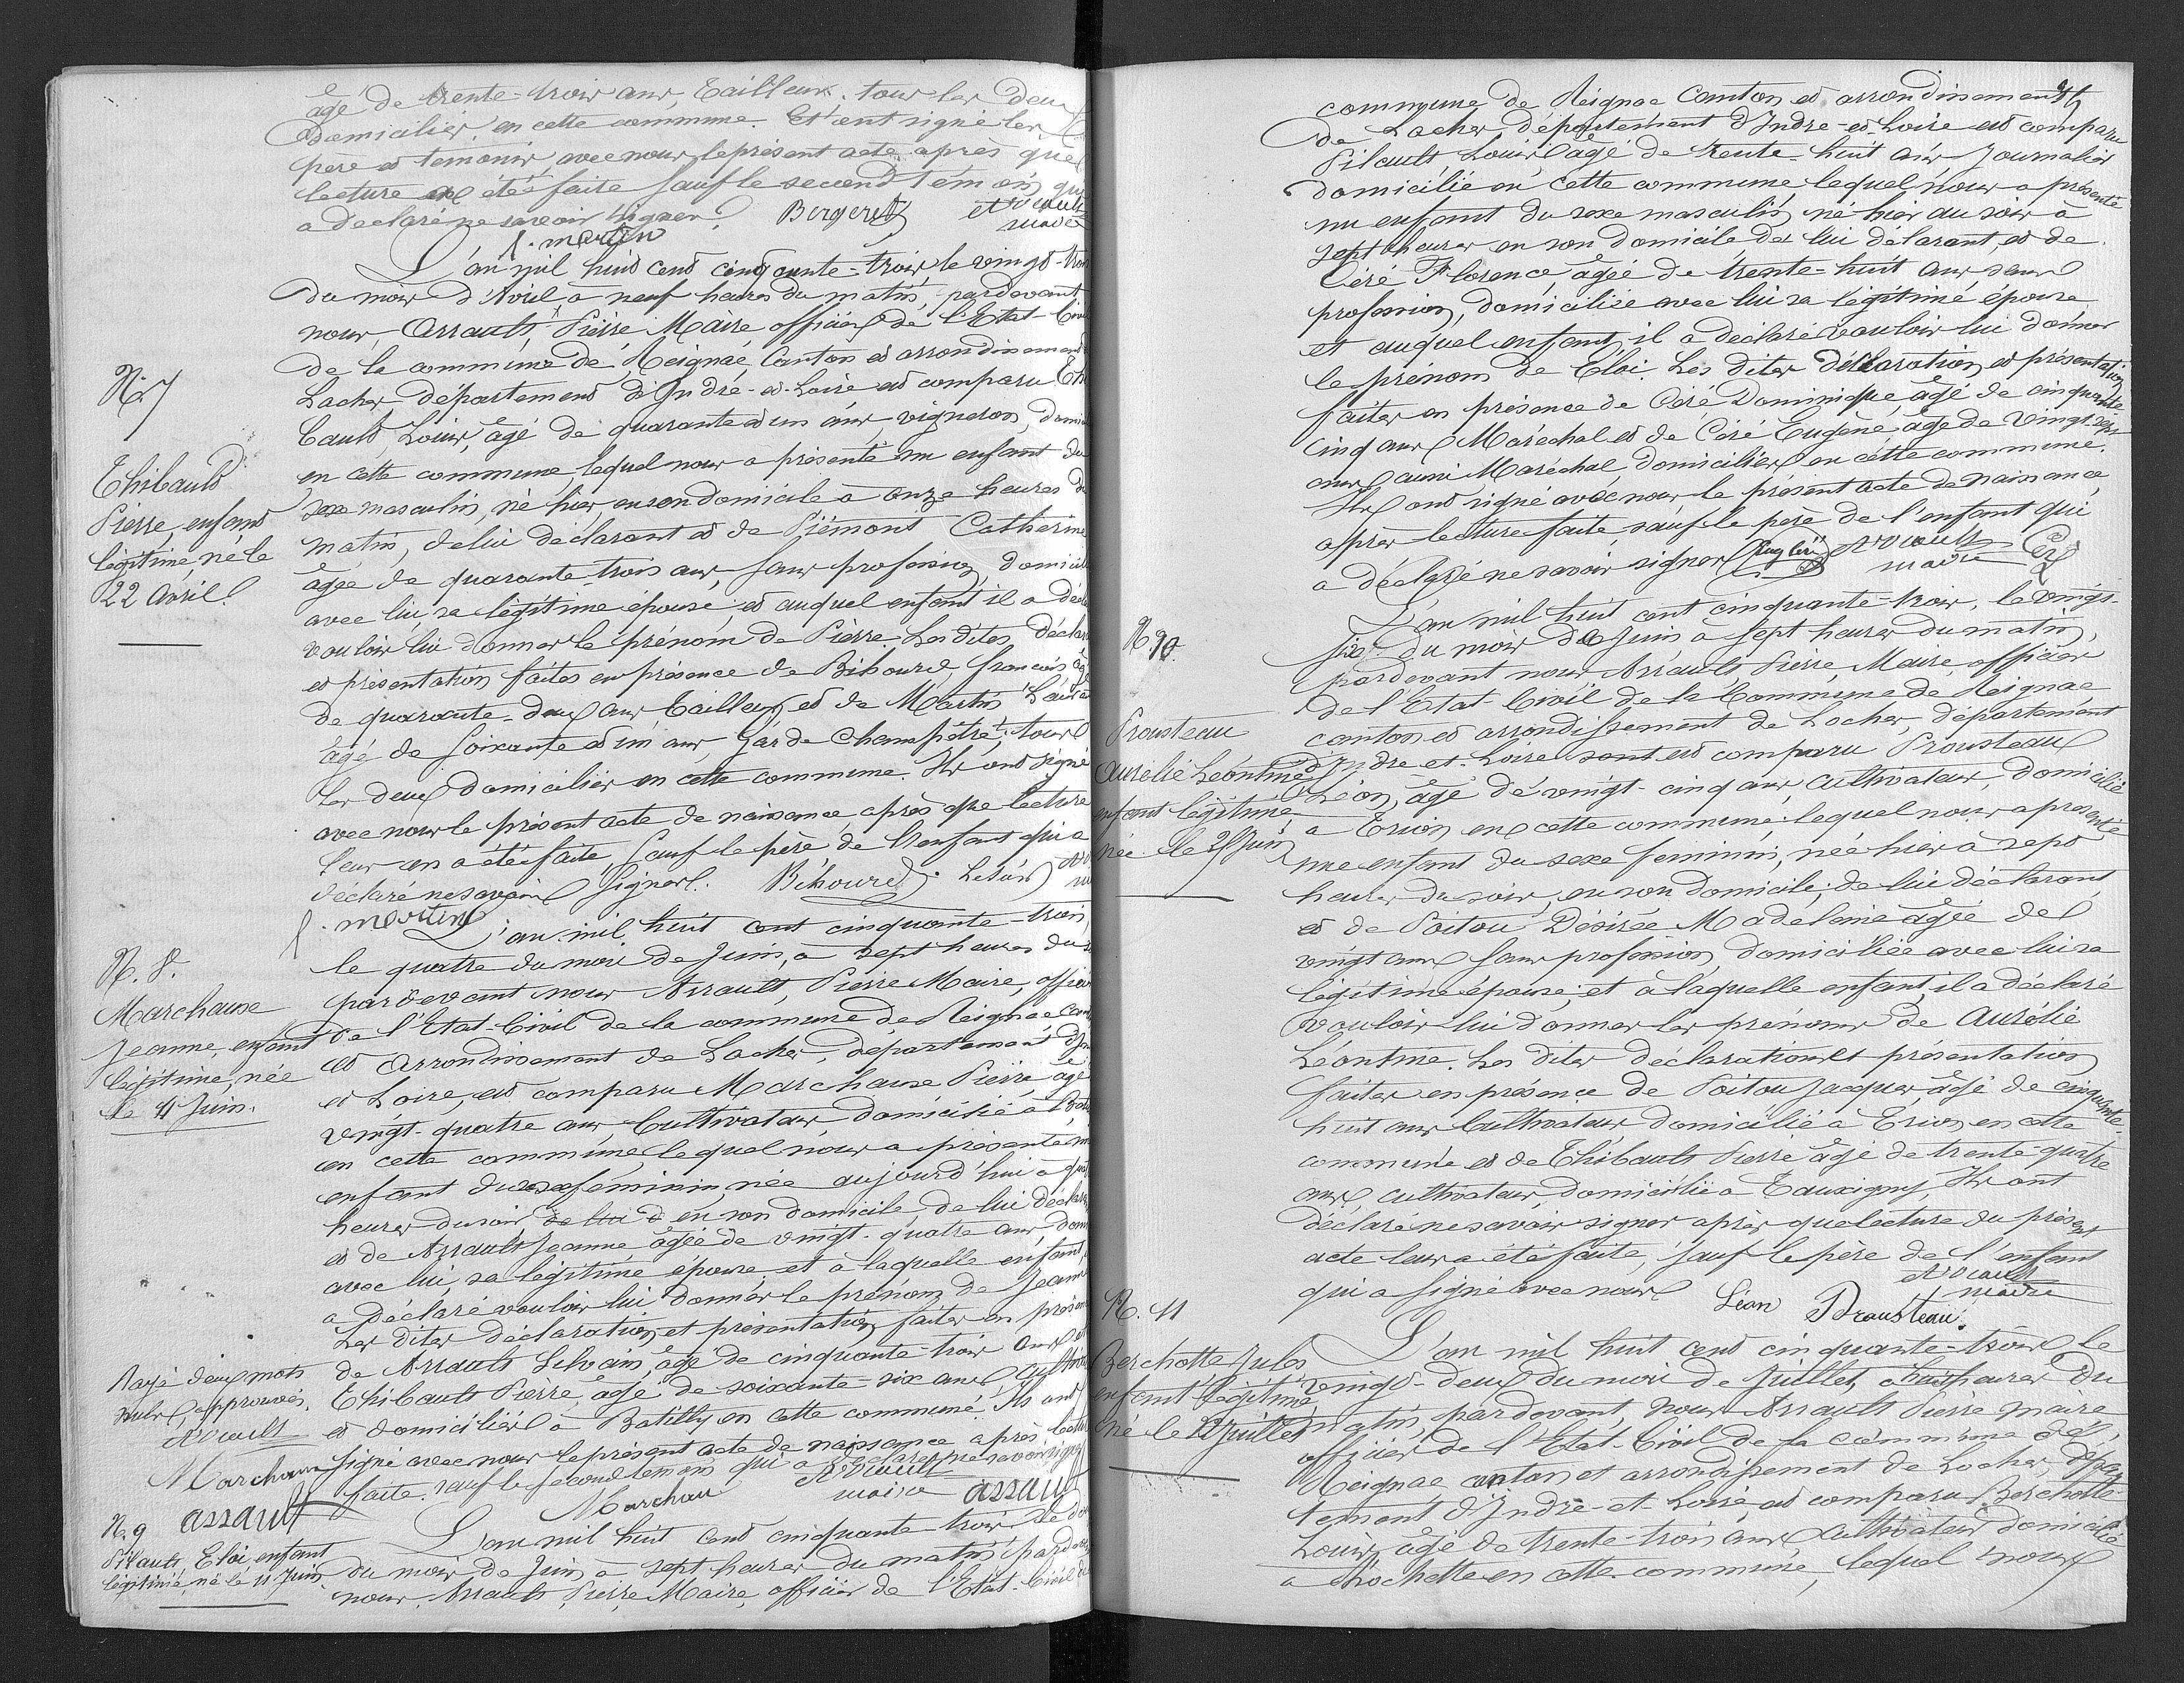 âgé de trente-trois ans, Tailleur. tous les deux
domiciliés en cette commune. Et ont signé les
père et témoins avec nous le présent acte après que
lecture en été faite sauf le second témoin qui
a déclaré ne savoir signer. Bergeret Arrault
f. martin maire
L'an mil huit cent cinquante-trois, le vingt-trois
du mois d'Avril, à neuf heures du matin, pardevant
nous, Arrault, Pierre Maire officier de l'Etat-Civil
de la commune de Reignac, Canton et arrondissement
Loches, département d'Indre-et-Loire est comparu Thi
N. 7
Thibault
Pierre, enfant
légitime, né le
22 avril.
bault Louis, âgé de quarante et un ans, vigneron, domi
en cette commune, lequel nous a présenté un enfant du
sexe masculin, né hier, en son domicile à onze heures du
matin, de lui déclarant et de Piémont Catherine
âgée de quarante trois ans, sans profession, domicil
avec lui, sa légitime épouse; et auquel enfant il a décl
vouloir lui donner le prénom de Pierre. Les dites décla
et présentation faites en présence de Béhourd, françois âgé
de quarante-deux ans Tailleur, et de Martin
âgé de soixante et un ans, Garde Champêtre, tous
les deux domiciliés en cette commune. Ils ont signé
avec nous le présent acte de naissance, après que lecture
leur en a été faite, sauf le père de l'enfant qui a
déclaré ne savoir signer. Béhourd
f. martin
L'an mil huit cent cinquante-trois,
le quatre du mois de Juin, à sept heures du
pardevant nous Arrault, Pierre Maire, officier
N. 8.
Marchause
Jeanne, enfant
légitime, née
le 4 Juin.
de l'Etat-Civil de la commune de Reignac can
et Arrondissement de Loches, département d'In
et Loire, est comparu Marchause Pierre, âgé
vingt-quatre ans, Cultivateur domicilié à
en cette commune, lequel nous a présenté un
enfant du sexe féminin, née aujourd'hui à
heures du soir de lui d en son domicile, de lui déclar
et de Arrault Jeanne, âgée de vingt-quatre ans, dom
avec lui, sa légitime épouse et à laquelle enfant,
a déclaré vouloir lui donner le prénom de Jeanne
Les dites déclaration et présentation faites en présen
de Arrault Silvain, âgé de cinquante-trois ans et
Thibault Pierre, âgé de soixante-six ans cultiva
et domiciliés à Batilly en cette commune. Ils ont
signé avec nous le présent acte de naissance après lectu
faite, sauf le second témoin qui a déclaré ne savoir sign
Rayé deux mots
nuls, approuvés.
Arrault
Marchau Arrault
maire assault
Marchau
assault
N. 9
Pilault, Eloi enfant
légitime, né le 11 Juin
L'an mil huit cent cinquante-trois, le do
du mois de Juin, à sept heures du matin, pardev
nous, Arrault, Pierre Maire, officier de l'Etat-Civil de
commune de Reignac Canton et arrondissement
de Loches, département d'Indre-et-Loire est comparu
Pilault, Louis, âgé de trente-huit ans Journalier
domicilié en cette commune, lequel nous a présenté
un enfant du sexe masculin, né hier au soir à
sept heures en son domicile de lui déclarant, et de
Céré Florence, âgée de trente-huit ans, sans
profession, domiciliée avec lui sa légitime épouse
et auquel enfant, il a déclaré vouloir lui donner
le prénom de Eloi. Les dites déclaration et présentation
faites en présence de Céré Dominique, âgé de cinquante
cinq ans Maréchal et de Céré Eugène, âgé de vingt-sept
ans aussi Maréchal domiciliés en cette commune.
Ils ont signé avec nous le présent acte de naissance,
après lecture faite, sauf le père de l'enfant qui
a déclaré ne savoir signer. Eug Céré Arrault
maire Céré
N. 10.
Prousteau
Aurélie Léontine
enfant légitime,
née le 25 Juin
L'an mil huit cent cinquante-trois, le vingt-
six du mois de Juin à sept heures du matin,
pardevant nous Arrault Pierre, Maire, officier
de l'Etat-Civil de la Commune de Reignac
canton et arrondissement de Loches, département
d'Indre-et-Loire sont est comparu Prousteau
Léon, âgé de vingt-cinq ans, cultivateur, domicilié
à Erion, en cette commune: lequel nous a présenté
une enfant du sexe féminin, née hier à sept
heures du soir, en son domicile; de lui déclarant
et de Poitou Désirée Madeleine âgée de
vingt ans sans profession, domiciliée avec lui sa
légitime épouse; et à laquelle enfant, il a déclaré
vouloir lui donner les prénoms de Aurélie
Léontine. Les dites déclaration et présentation
faites en présence de Poitou Jacques, âgé de cinquante-
huit ans Cultivateur domicilié à Erion en cette
commune et de Thibault Pierre âgé de trente-quatre
ans, cultivateur, domicilié à Tauxigny, Ils ont
déclaré ne savoir signer après que lecture du présent
acte leur a été faite, sauf le père de l'enfant
qui a signé avec nous Arrault
maire
Léon Prousteau.
N. 11
Berchotte Jules
enfant légitime,
né le 21 Juillet
L'an mil huit cent cinquante-trois le
vingt-deux du mois de Juillet, à huit heures du
matin, pardevant, nous Arrault Pierre maire
officier de l'Etat-Civil de la commune de
Reignac canton et arrondissement de Loches, dépar
tement d'Indre-et-Loire, est comparu Berchotte
Louis, âgé de trente-trois ans Cultivateur domicilié
à Rochette en cette commune, lequel nous